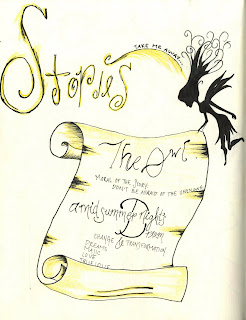 TAKE ME AWAY
Stories
The Owl
MORAL OF THE STORY
DON'T BE AFRAID OF THE UNKNOWN
a midsummer night's
Dream
CHANGE & TRANSFORMATION
DREAMS
MAGIC
LOVE